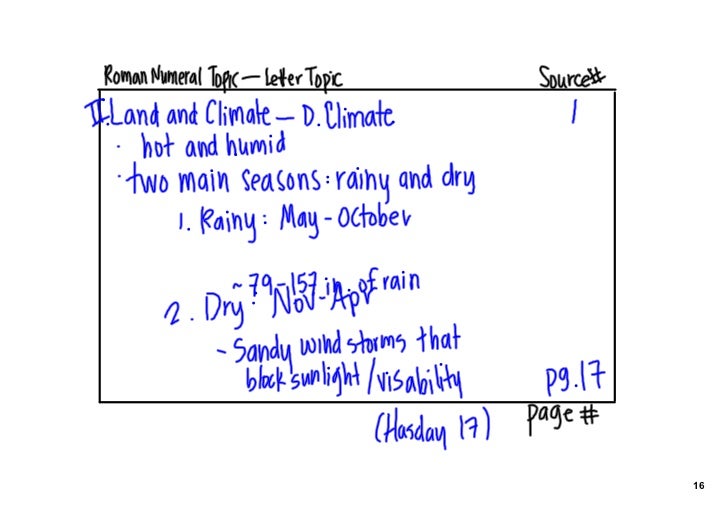 Roman Numeral Topic — Letter Topic Source#
II. Land and Climate — D. Climate 1
· hot and humid
· two main seasons: rainy and dry
1. Rainy: May - October
~ 79-157 in. of rain
2. Dry: Nov - Apr
- Sandy wind storms that
block sunlight / visability pg. 17
(Hasday 17) page #
16